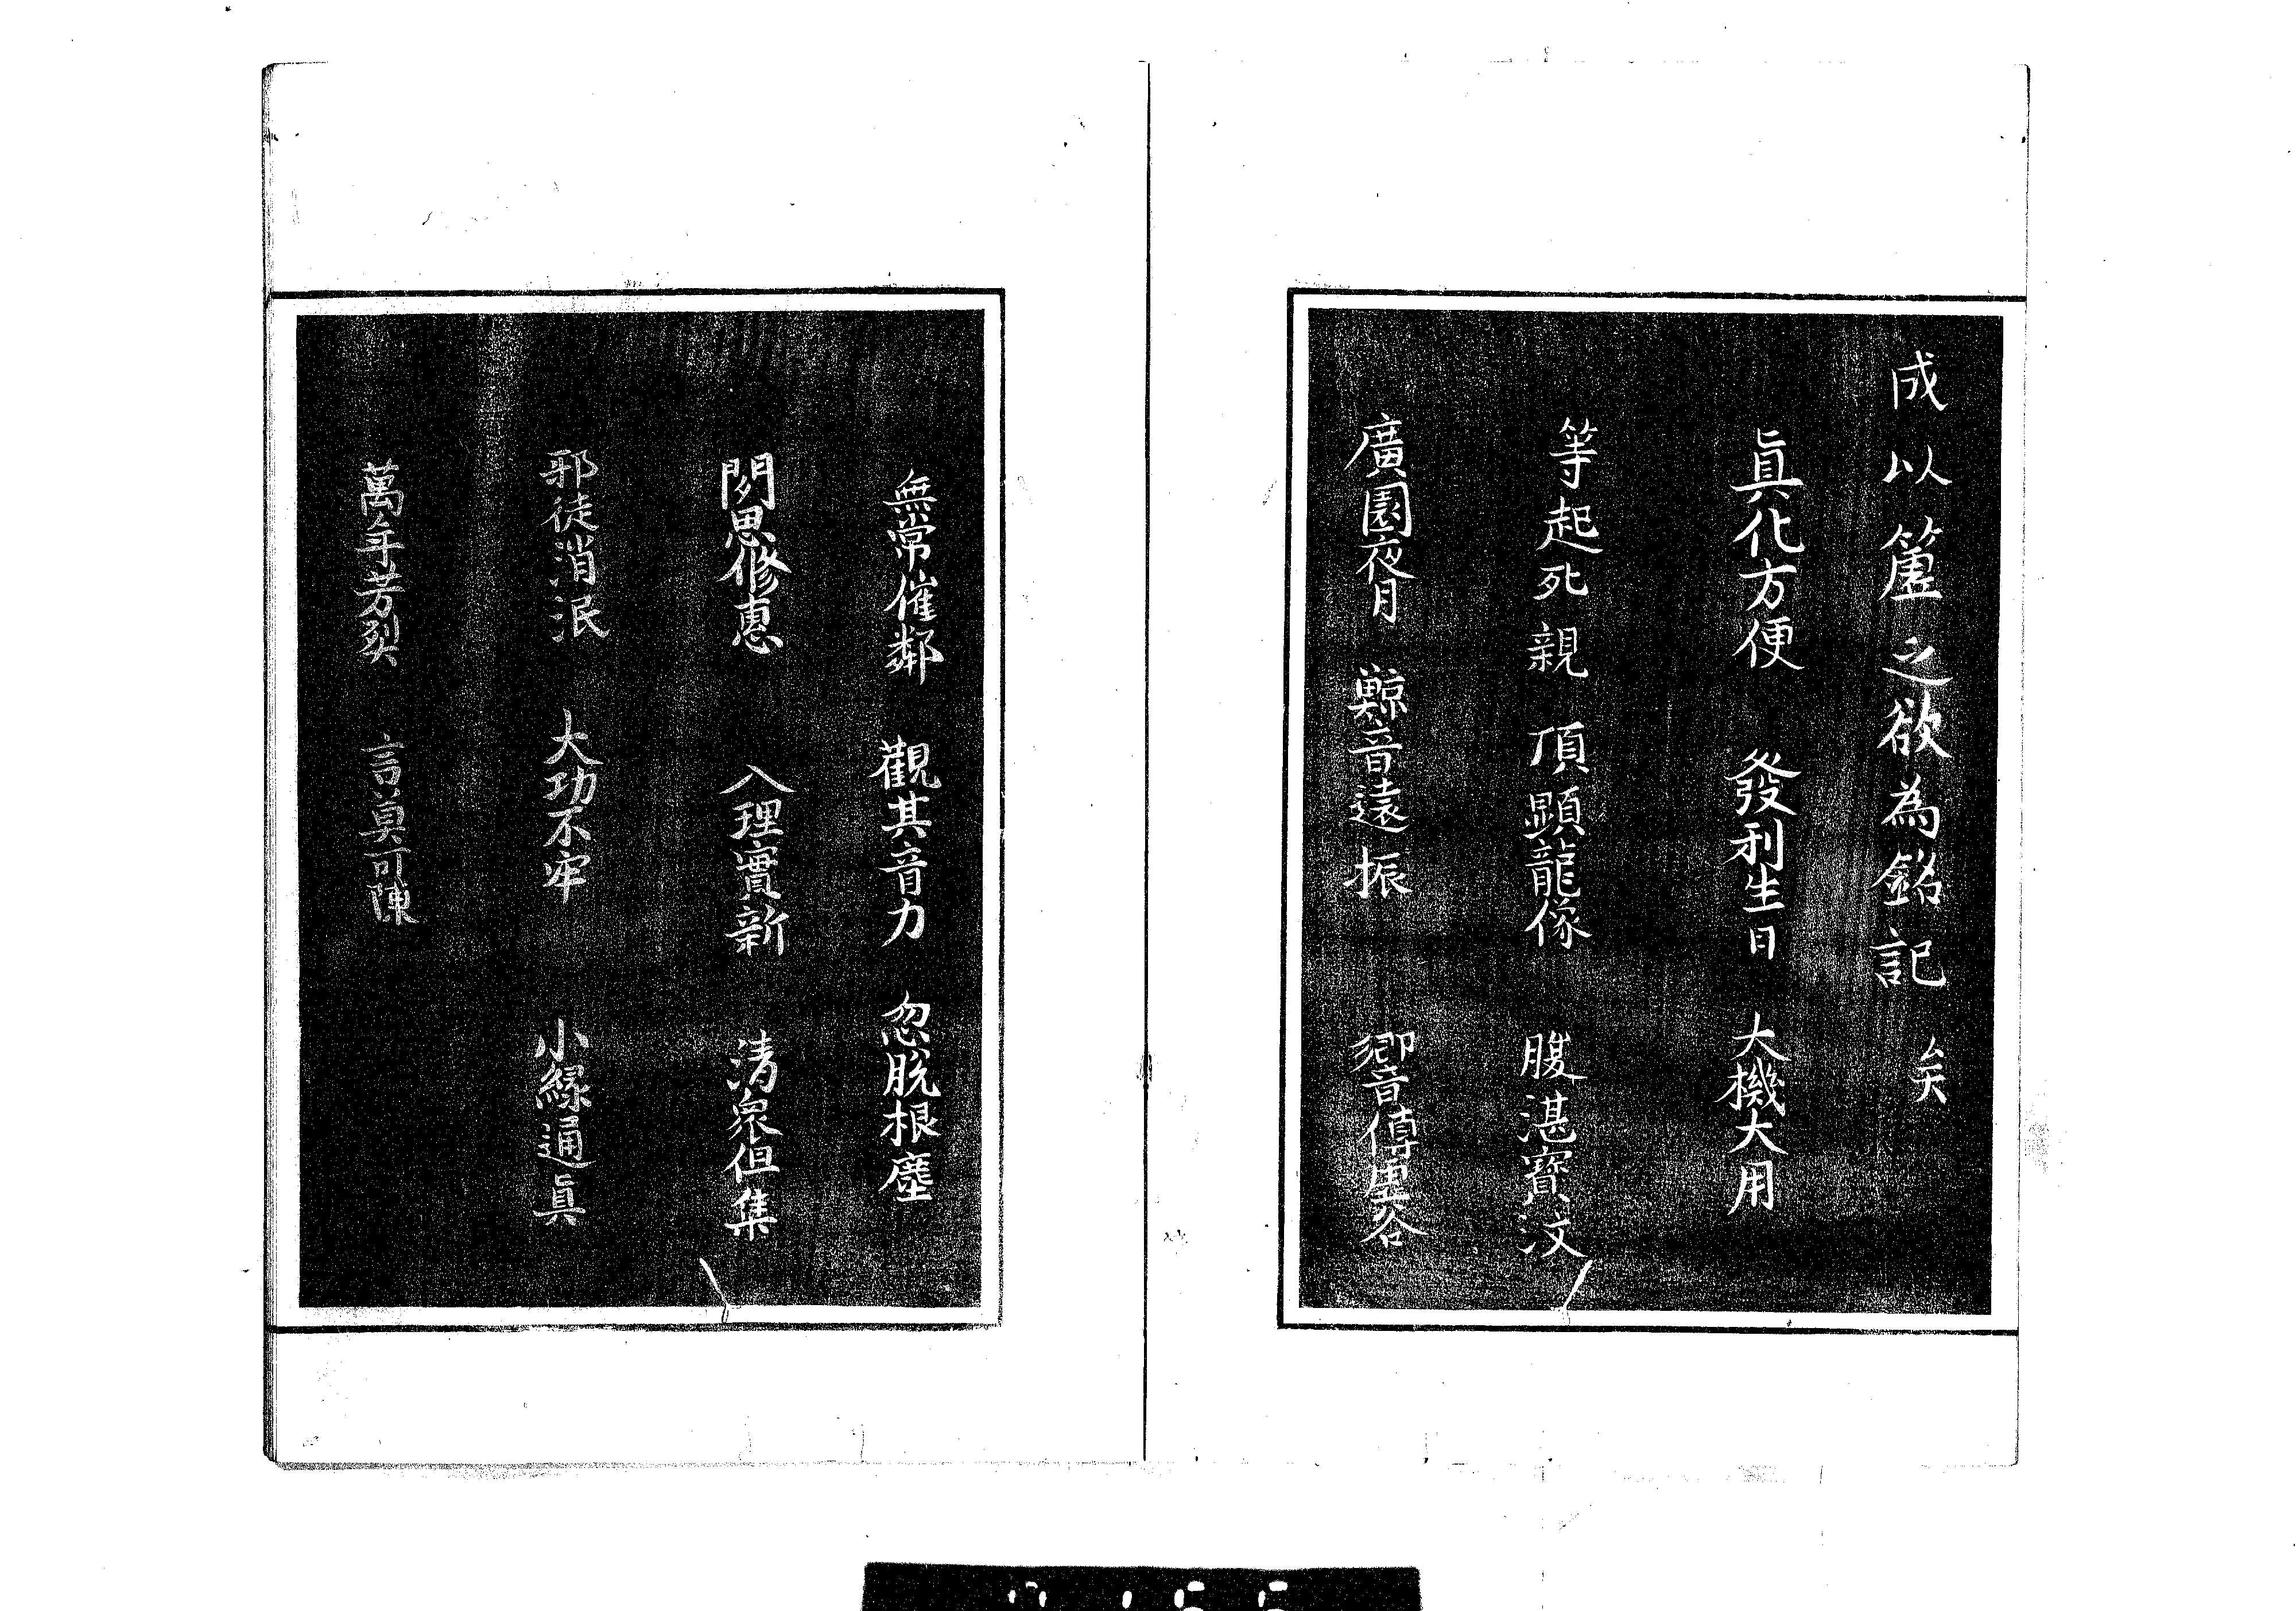 成以簴之欲為銘記矣
眞化方便 發利生日 大機大用
等起死親 頂顕龍像 腹湛寶汶
廣園夜月 鯨音遠振 響傳里谷
無常催鄰 觀其音力 忽脱根塵
聞思修惠 入理實新 清衆但集
邪徒消泯 大功不牢 小緣通眞
萬年芳烈 言莫可陳